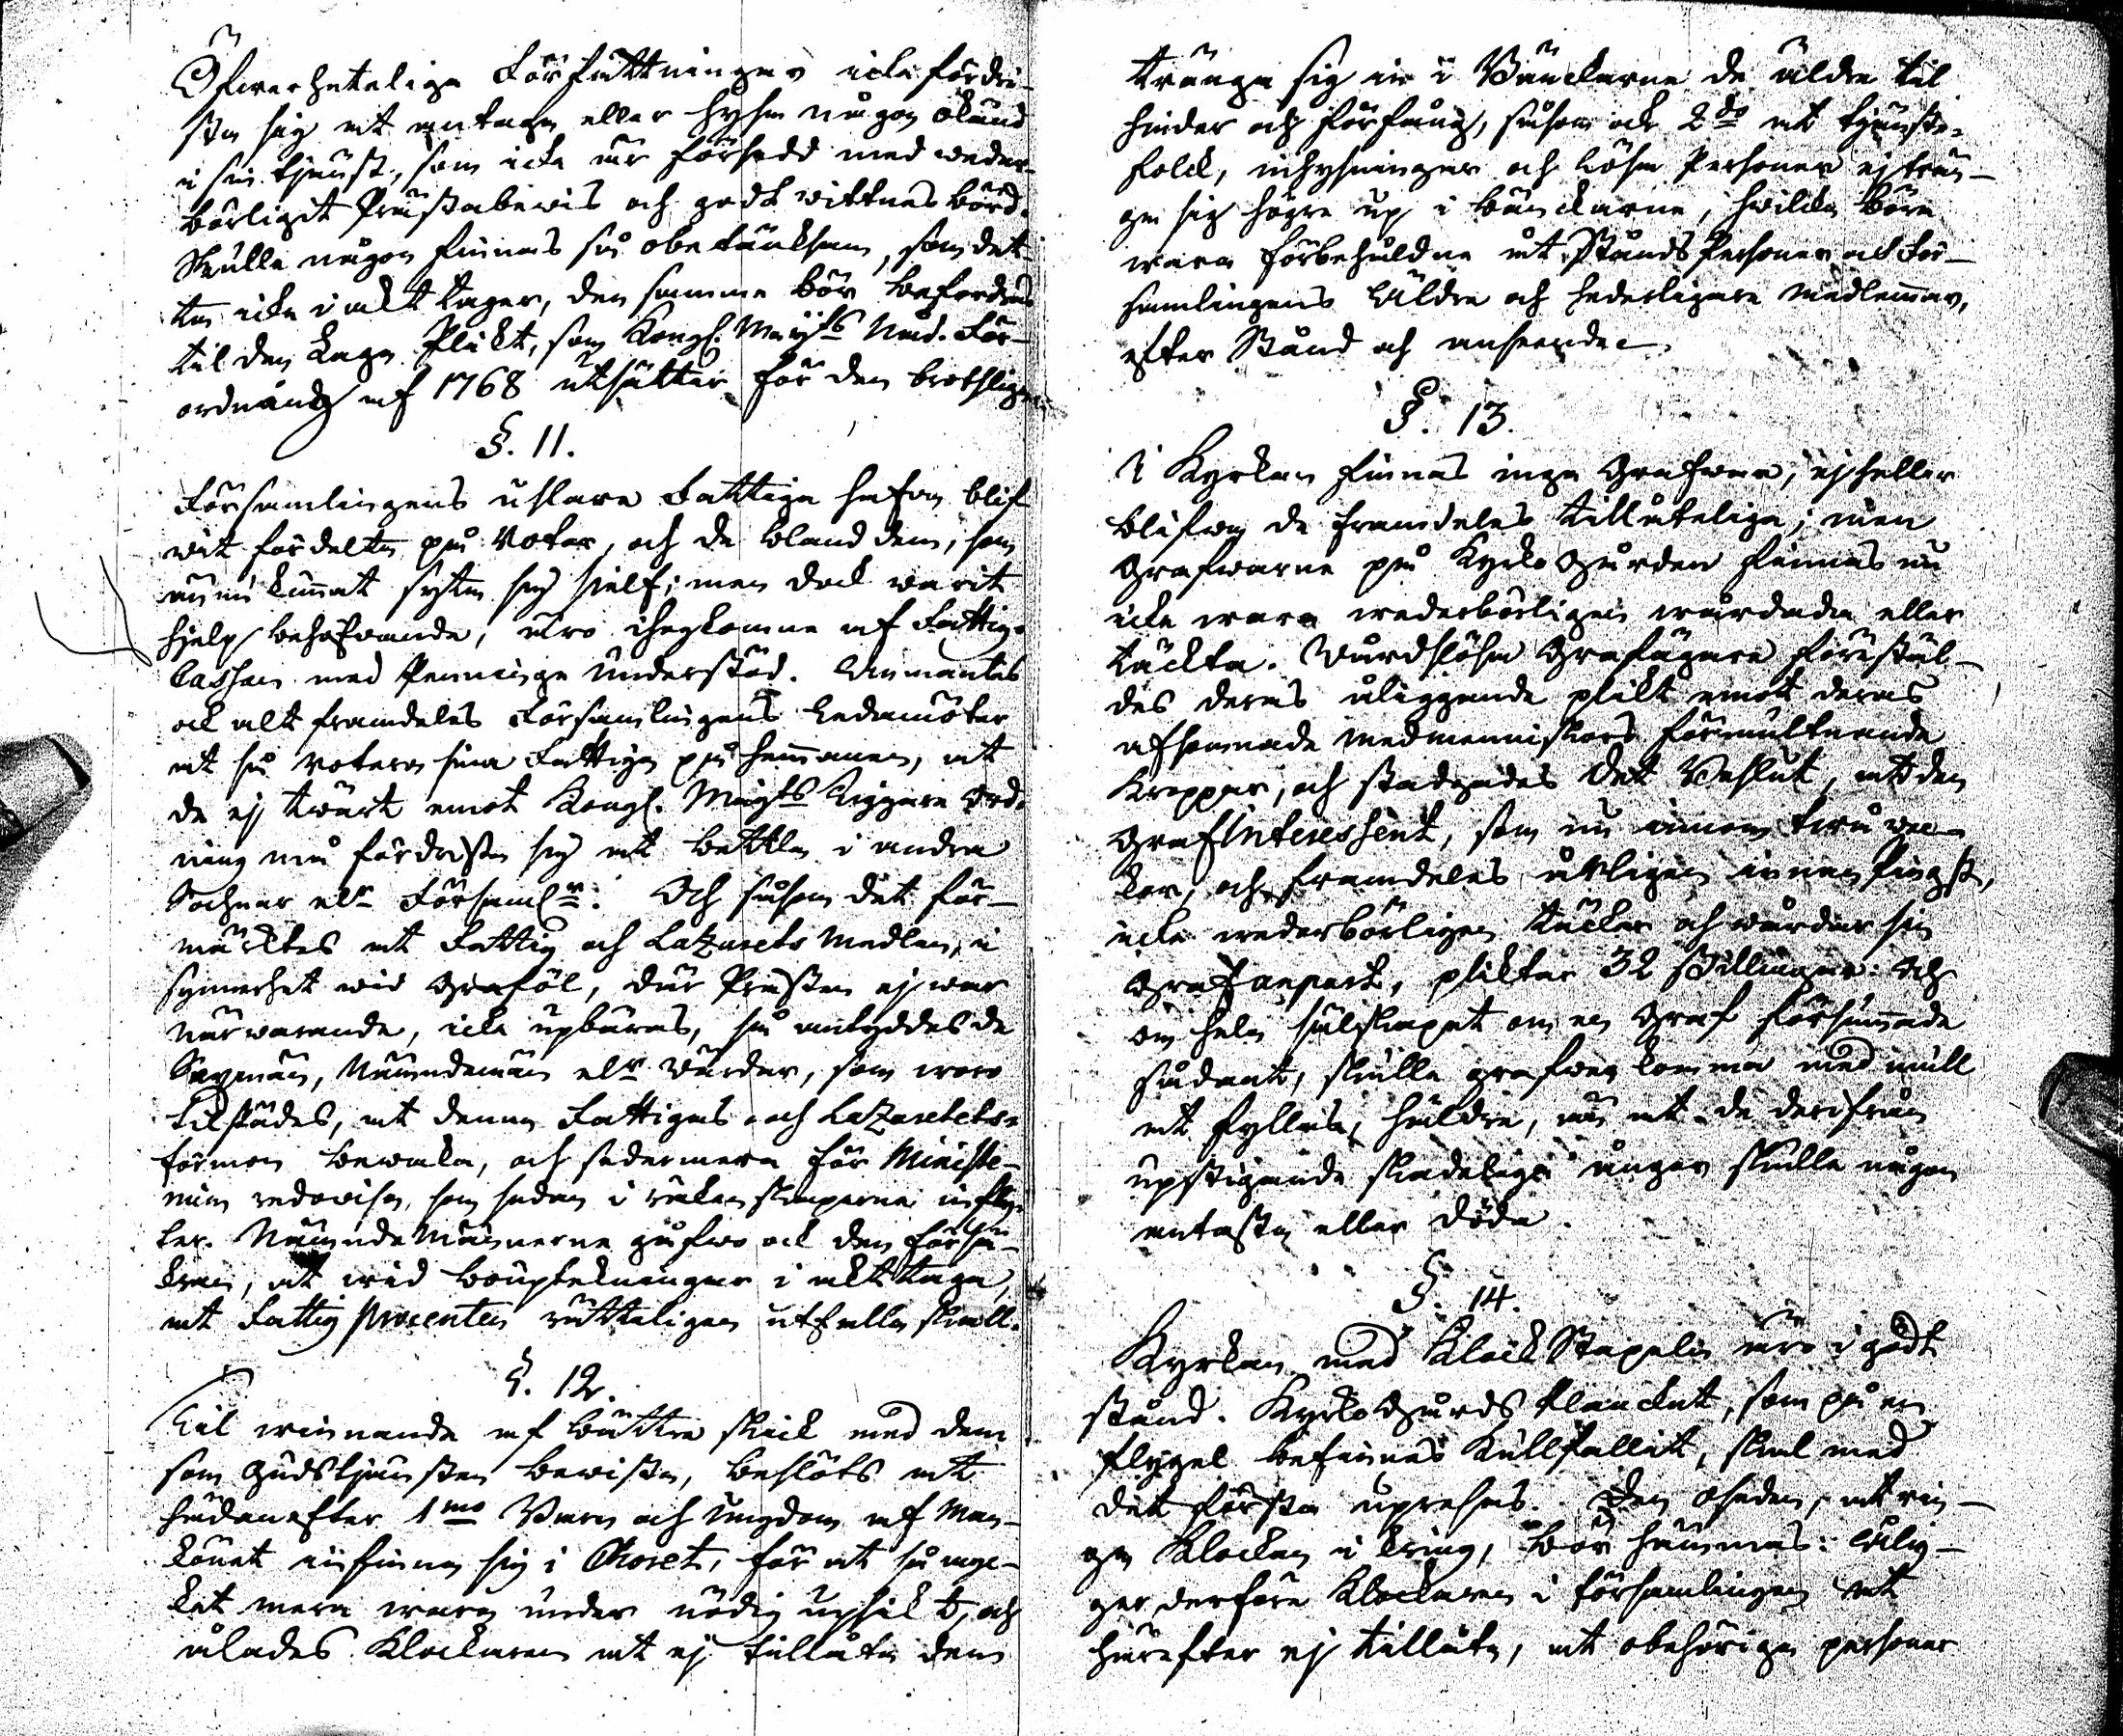 Öfwerhetelige Författningar icke fördri-
sta sig at antaga eller hysa någon okänd
i sin tjenst, som icke är försedd med weder-
börligit Prästabewis och godt wittnesbörd.
Skulle någon finnas så obetänksam, som det-
ta icke i akt tager, den samme bör befordras
til den Laga Plikt, som Kongl. Maij:ts Nåd. För-
ordning af 1768 utsätter för den brotslige.
§. 11.
Församlingens uslare Fattige hafwa blif-
wit fördelte på Rotar, och de bland dem, som
ännu kunnat sysla sig sielf, men dock warit
hjelp behöfwande, äro ihogkomne af Fattig-
Cassan med Penninge understöd. Anmantes
ock alt framdeles Församlingens Ledamöter
at så rotera sina Fattiga på hemmanen, at
de ej twärt emot Kongl. Maij:ts Tiggare Ord-
ning må fördrista sig at bettla i andra
Sochnar el:r Församl:r. Och såsom det för-
märktes at Fattig och Lazarets Medlen, i
synnerhet wid Graföl, där Prästen ej war
närwarande, icke upbäras, så antyddes de
Sexmän, Nämndemän el:r Wärdar, som woro
tilstädes, at denna Fattigas och Lazarettets
förmon bewaka, och sedermera för Ministe-
rium redowisa, som sedan i räkenskaperna infly-
ter. Nämnde Männerne gåfwo ock den försä-
kran, at wid Boupteckningar i akt taga,
at Fattig procenten rätteligen utfalla skall.
§. 12.
Til winnande af bättre skick med dem
som Gudstjensten bewista, beslöts at
hädanefter 1mo Barn och Ungdom af Man-
könet infinna sig i Choret, för at så myc-
ket mera wara under nödig upsikt, och
ålades Klockaren at ej tillåta dem
tränga sig in i Bänckarne de äldre til
hinder och förfång, såsom ock 2do at tjenste-
folck, inhysningar och Löse Personer ej trän-
ga sig högre up i bänckarne, hwilka böra
wara förbehåldne åt Stånds Personer och För-
samlingens Äldre och hederligare medlemmar,
efter Stånd och anseende.
§. 13.
I Kyrkan finnas inga Grafwar, ej heller
blifwa de framdeles tillåtelige; men
Grafwarne på Kyrkogården finnas nu
icke wara wederbörligen wårdade eller
täckta. Wårdslösa Grafägare förestäl-
des deras åliggande plikt emot deras
afsomnade Medmenniskors förmultnande
Kroppar, och stadgades det Beslut, at den
Graf Interessent, som nu innom twå wec-
kor, och framdeles årligen innan Pingst,
icke wederbörligen täcker och wårdar sin
Graf anpart, pliktar 32 skillingar. Och
om hela sälskapet om en Graf försummade
sådant, skulle grafwen komma med mull
at fyllas, häldre, än at de derifrån
upstigande skadelige ångor skulle någon
antasta eller döda.
§. 14.
Kyrkan med KlockStapeln äro i godt
stånd. Kyrkogårds Planckut, som på en
flygel befinnes Kullfallit, skal med
det första upresas. Den oseden, at rin-
ga Klockan i kring, bör hämmas: Ålig-
ger derföre Klockaren i församlingen at
härefter ej tillåta, at obehörige personer